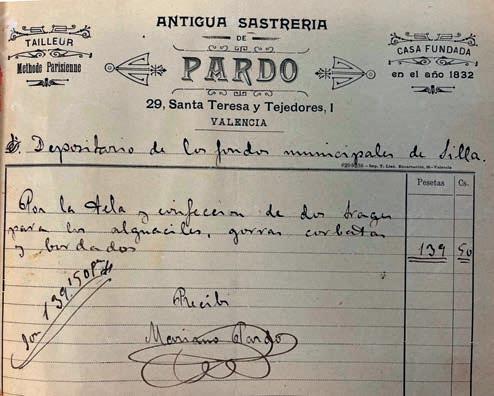 ANTIGUA SASTRERIA
DE
PARDO
TAILLEUR
Methode Parisienne
CASA FUNDADA
en el año 1832
29, Santa Teresa y Tejedores, 1
VALENCIA
Depositario de los fondos municipales de Silla.
Valencia
Pesetas Cs.
Por la tela y confeccion de dos trages
para los alguaciles, gorras corbatas
y bordados 139 50
Son 139'50 Pts
Recibi
Mariano Pardo